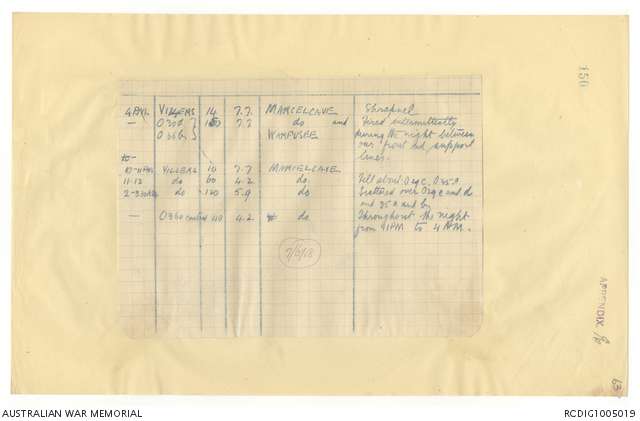 150
4 PM. VILLERS 14 7.7. MARCELCAVE Shrapnel
— O30d 150 7.7 do and Fired intermittently
O36b WARFUSEE during the night between
our front and support
lines.
to-
VILLERS 10 7.7 MARCELCAVE
11-12 do 60 4.2. do. Fell about O29c, O35a
do 120 5.9 do Scattered over O29c and d
and 35a and b
— O36c 40 4.2. do. Throughout the night
from 9PM to 4AM.
7/5/18
APPENDIX
63
AUSTRALIAN WAR MEMORIAL
RCDIG1005019